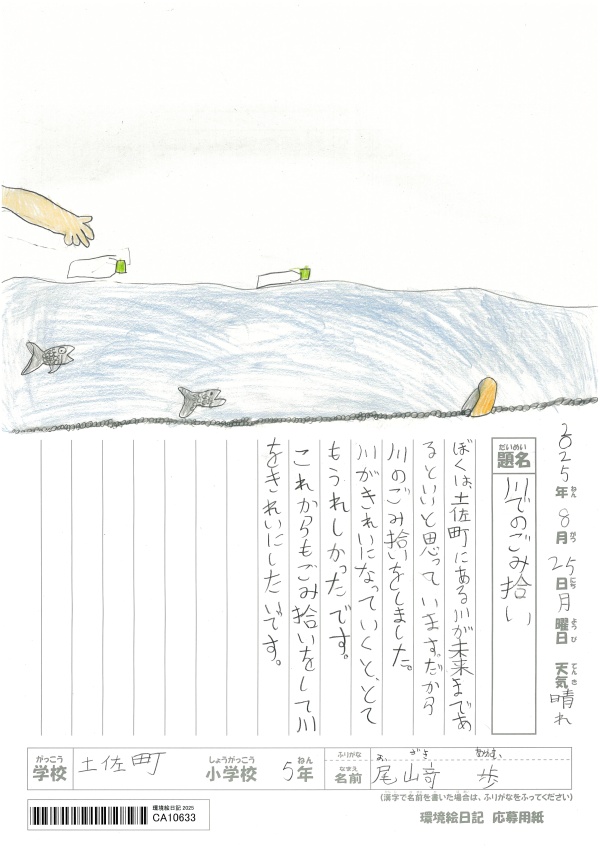 2025年ねん8月がつ25日にち月曜日ようび 天気てんき晴れ
だいめい
題名
川でのごみ拾い
ぼくは、土佐町にある川が未来まであ
るといいと思っています。だから
川のごみ拾いをしました。
川がきれいになっていくと、とて
もうれしかったです。
これからもごみ拾いをして川
をきれいにしたいです。
がっこう
学校
土佐町
しょうがっこう
小学校
5年ねん
ふりがな
なまえ
名前
おざき
尾山奇 歩
(漢字で名前を書いた場合は、ふりがなをふってください)
環境絵日記 2025
CA10633
環境絵日記 応募用紙